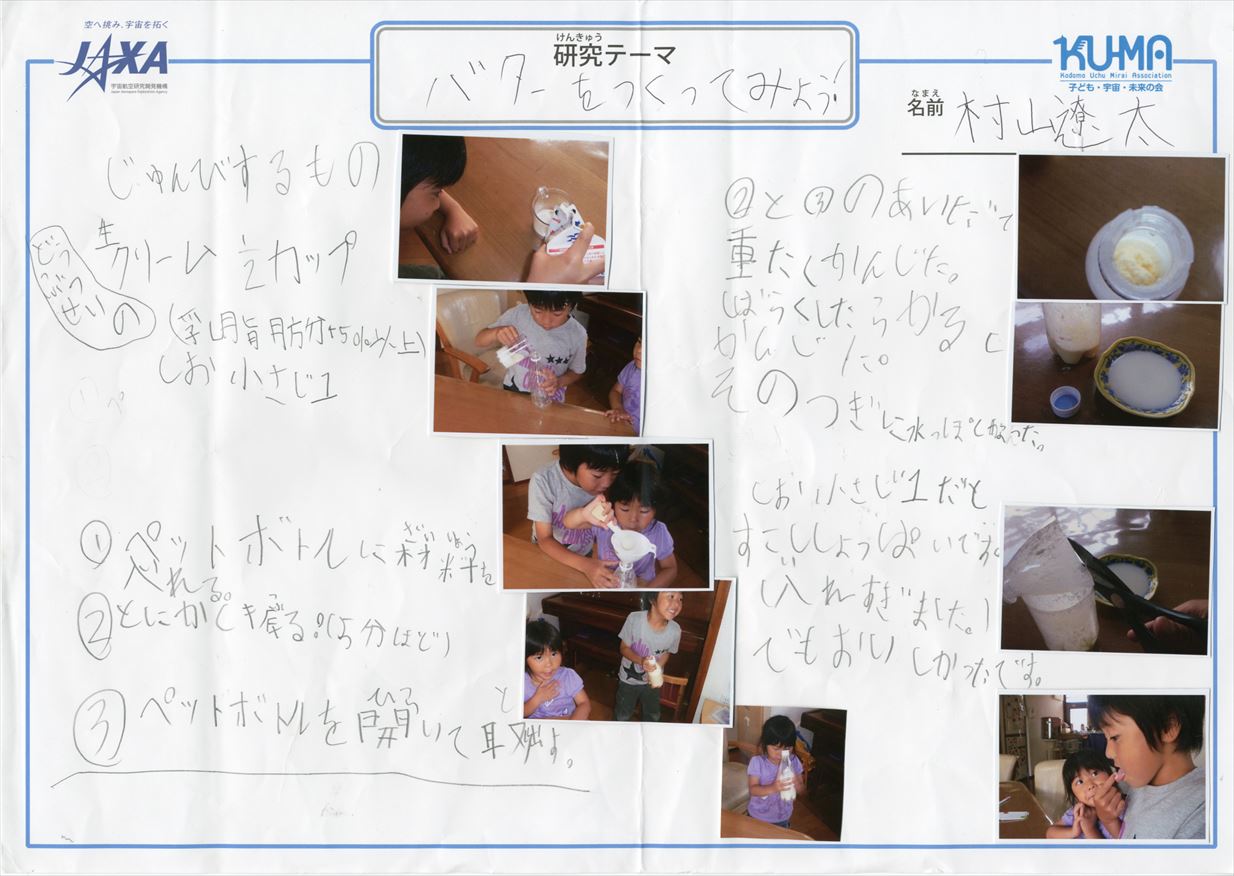 空へ挑み、宇宙を拓く
JAXA
宇宙航空研究開発機構
Japan Aerospace Exploration Agency
けんきゅう
研究テーマ
バターをつくってみよう!
KU-MA
Kodomo Uchu Mirai Association
子ども・宇宙・未来の会
なまえ
名前 村山遼太
じゅんびするもの
どうぶつせいの
生クリーム 1/2カップ
(乳脂肪分45%以上)
しお 小さじ1
① ペットボトルに材料を
ざい りょう
入れる。
② とにかく振る。(5分ほど)
③ ペットボトルを開いて取り出す。
ひら と
②と③のあいだで
重たくかんじた。
しばらくしたらかるく
かんじた。
そのつぎに水っぽくかんじた。
しお小さじ1だと
すごいしょっぱいです。
(入れすぎました。)
でもおいしかったです。